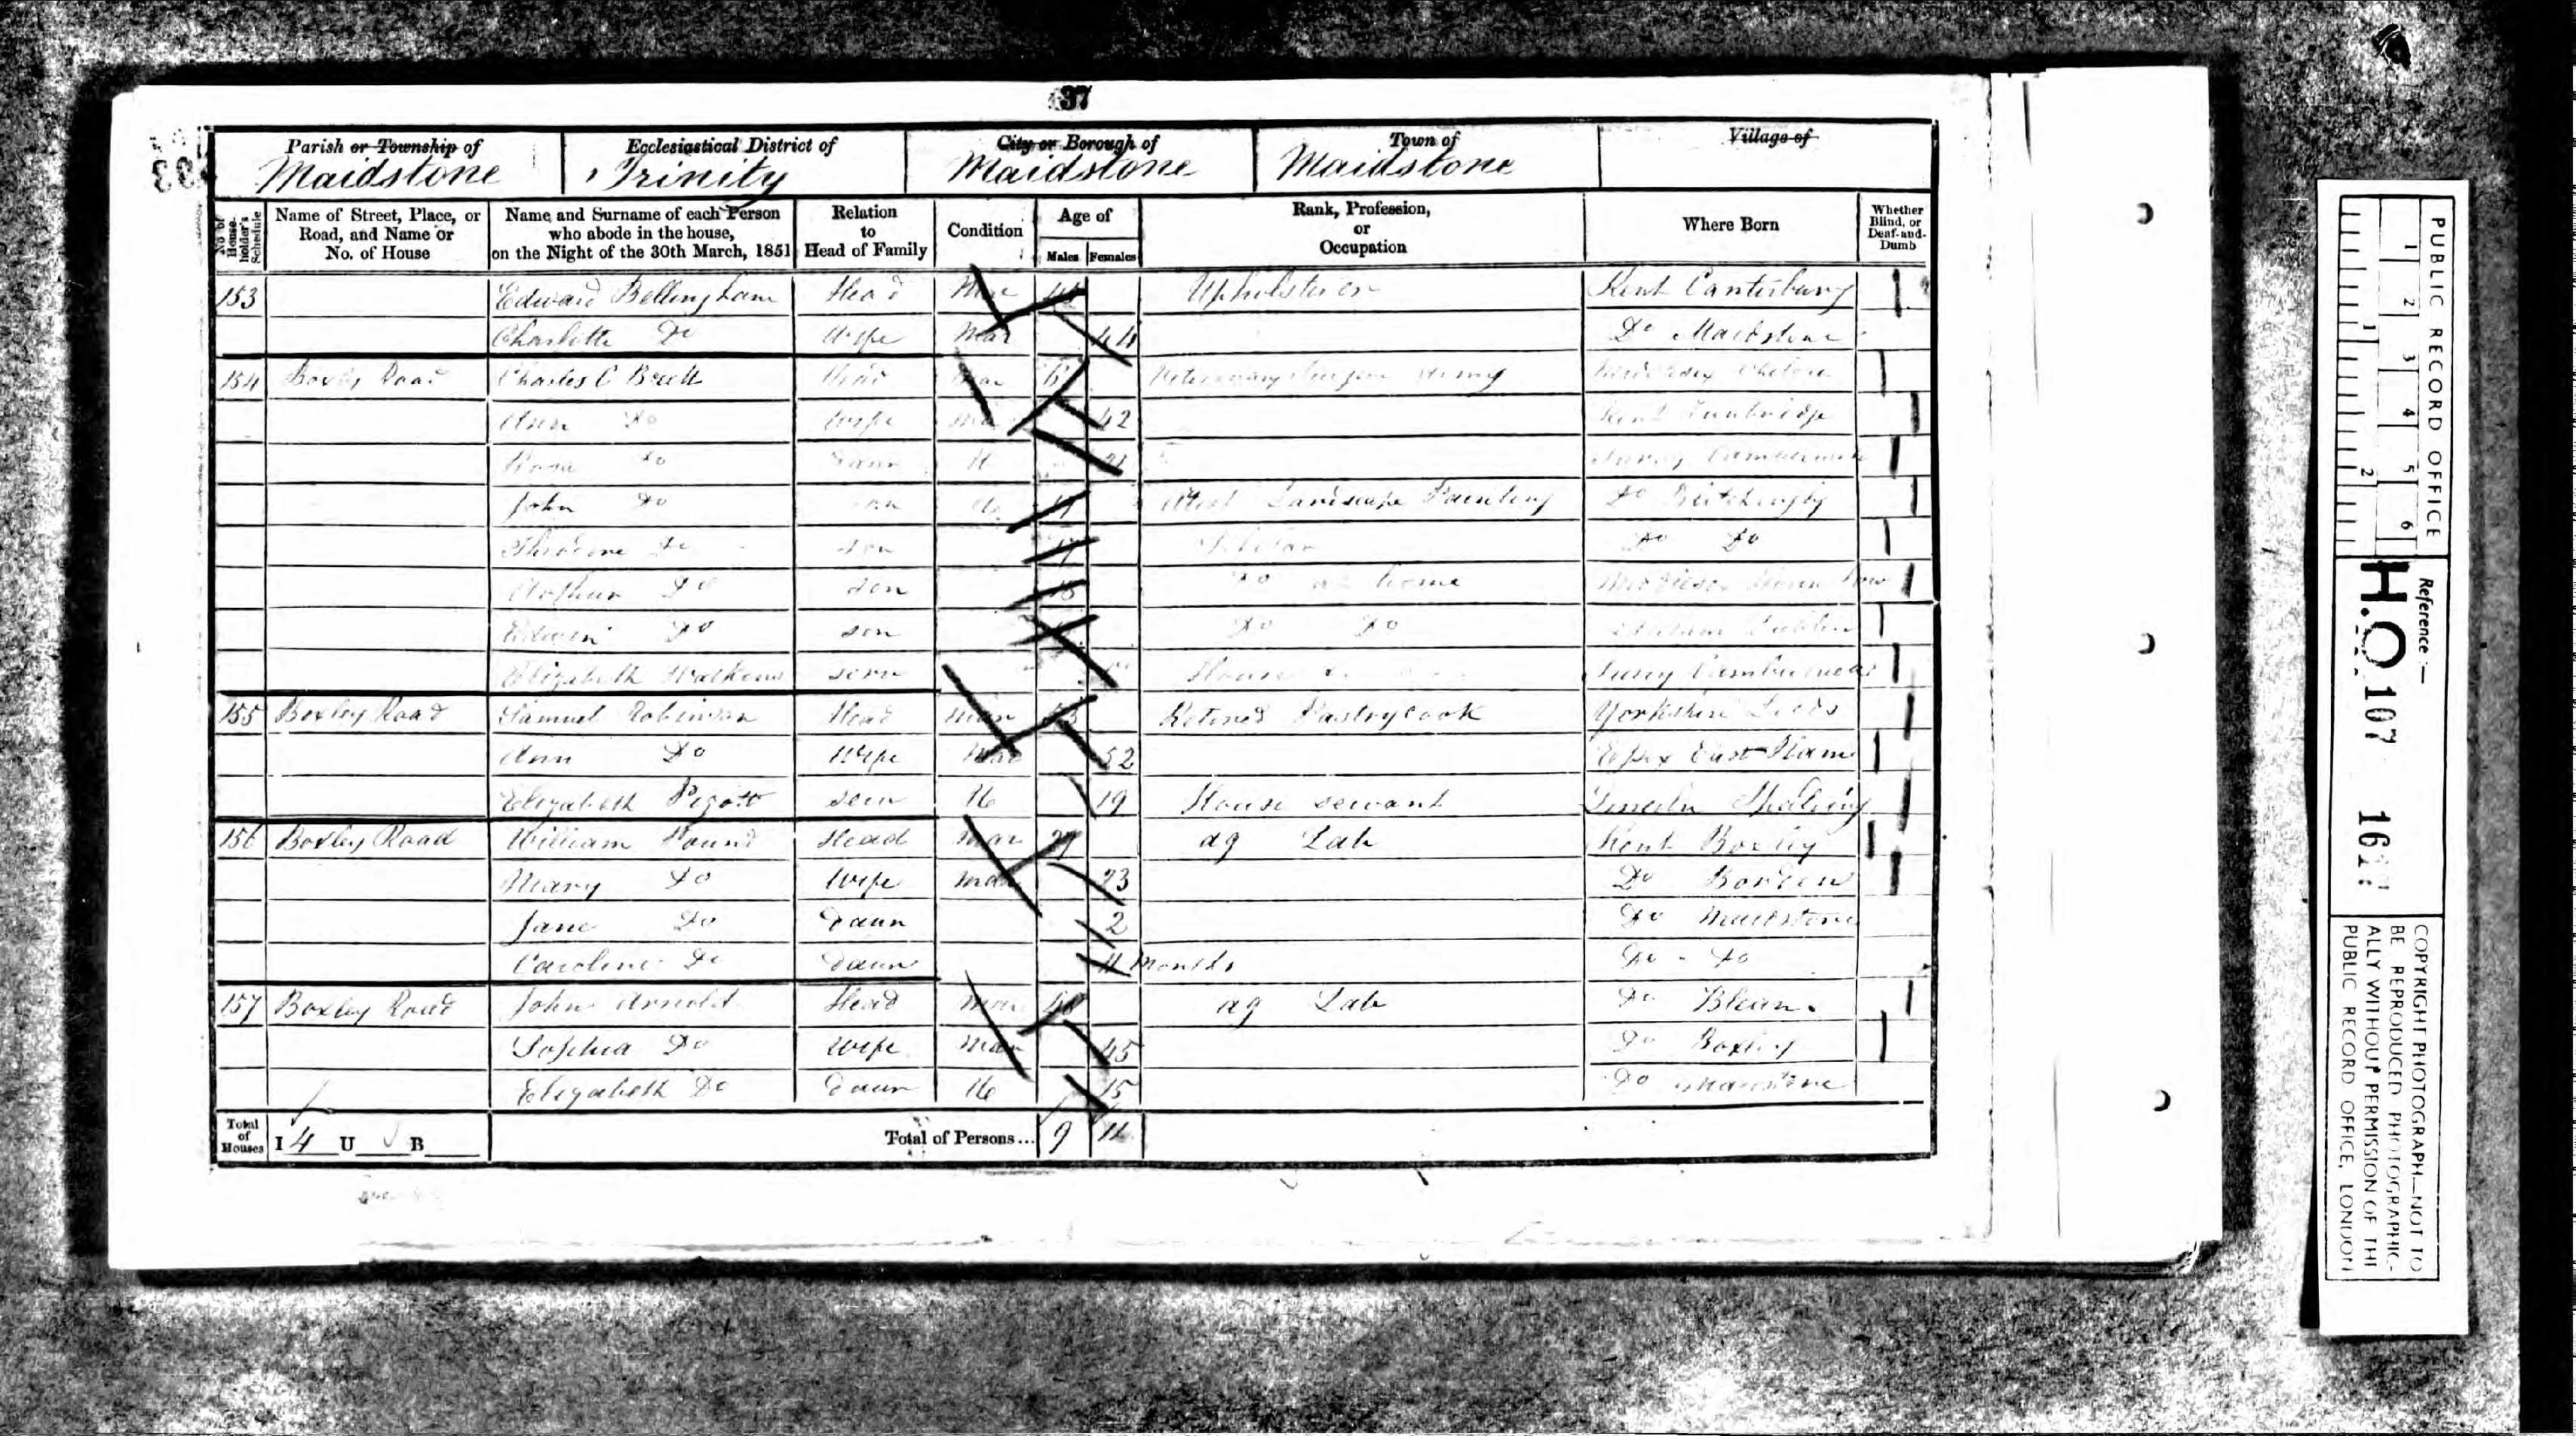 37
Parish or Township of Ecclesiastical District of City or Borough of Town of Village of
Maidstone Trinity Maidstone Maidstone
No. of House-holder's Schedule Name of Street, Place, or Road, and Name or No. of House Name and Surname of each Person who abode in the house, on the Night of the 30th March, 1851 Relation to Head of Family Condition Age of Males Females Rank, Profession, or Occupation Where Born Whether Blind, or Deaf-and-Dumb
153 Edward Bellingham Head Mar Upholsterer Kent Canterbury
Charlotte Do Wife Mar 44 Do Maidstone
154 Boxley Road Charles C Head Mar Veterinary Surgeon Army Middlesex Chelsea
Ann Do Wife Mar 42 Kent Tunbridge
Rosa Do Daur U 21 Surrey
John Do son U Artist Landscape Painting Do
Theodore Do son Scholar Do Do
Arthur Do son Do at home Middlesex
Edwin Do son Do Do Dublin
Elizabeth Watkins serv House Surrey
155 Boxley Road Samuel Robinson Head Mar Retired Pastrycook Yorkshire Leeds
Ann Do Wife Mar 52 Essex East Ham
Elizabeth Pigott serv U 19 House servant Lincoln
156 Boxley Road William Pound Head Mar ag Lab Kent Boxley
Mary Do Wife Mar 23 Do Borden
Jane Do Daur 2 Do Maidstone
Caroline Do Daur 11 Months Do - Do
157 Boxley Road John Arnold Head Mar ag Lab Do Blean
Sophia Do Wife Mar 45 Do Boxley
Elizabeth Do Daur U 15 Do Maidstone
Total of Houses I 4 U B Total of Persons... 9 11
PUBLIC RECORD OFFICE
1 2 3 4 5 6
1 2
Reference :—
H.O 107
COPYRIGHT PHOTOGRAPH—NOT TO
BE REPRODUCED PHOTOGRAPHIC-
ALLY WITHOUT PERMISSION OF THE
PUBLIC RECORD OFFICE, LONDON